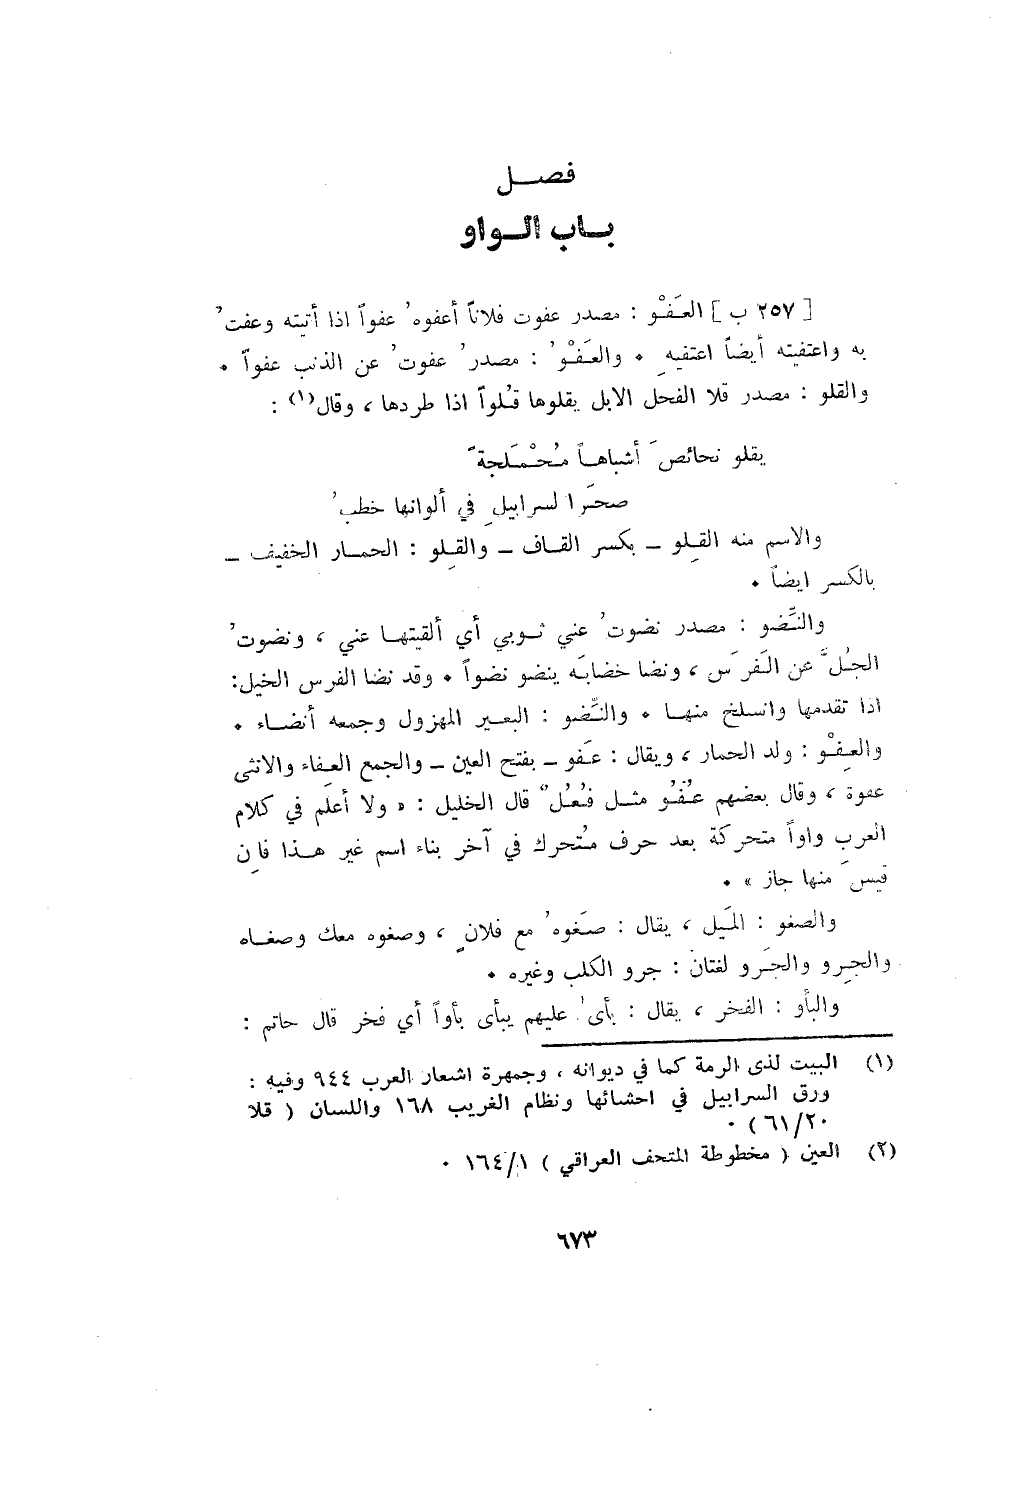 فصــل
بــاب الــواو
[ ٢٥٧ ب ] العَفْو : مصدر عفوت فلاناً أعفوهُ عفواً اذا أتيته وعفتُ
به واعتفيته أيضاً اعتفيهِ • والعَفْوُ : مصدرُ عفوتُ عن الذنب عفواً •
والقلو : مصدر قلا الفحل الابل يقلوها قُلواً اذا طردها ، وقال(١) :
يقلو نحائصَ أشباهاً مُحْمَلجةً
صحَرَ السرابيلِ في ألوانها خطبُ
والاسم منه القِلو ــ بكسر القاف ــ والقِلو : الحمار الخفيف ــ
بالكسر ايضاً •
والنَّضو : مصدر نضوتُ عني ثوبي أي ألقيتها عني ، ونضوتُ
الجُلَّ عن الفَرَس ، ونضا خضابَه ينضو نضواً • وقد نضا الفرس الخيل:
اذا تقدمها وانسلخ منها • والنِّضو : البعير المهزول وجمعه أنضاء •
والعِفْو : ولد الحمار ، ويقال : عَفو ــ بفتح العين ــ والجمع العِفاء والانثى
عفوة ، وقال بعضهم عُفُو مثل فُعُلٌ قال الخليل : « ولا أعلم في كلام
العرب واواً متحركة بعد حرف مُتحرك في آخر بناء اسم غير هذا فاِن
قيسَ منها جاز » •
والصغو : المَيل ، يقال : صَغوهُ مع فلانٍ ، وصغوه معك وصغاه
والجِرو والجَرو لغتان : جرو الكلب وغيره •
والبأو : الفخر ، يقال : بأى عليهم يبأى بأواً أي فخر قال حاتم :
(١) البيت لذى الرمة كما في ديوانه ، وجمهرة اشعار العرب ٩٤٤ وفيه :
ورق السرابيل في احشائها ونظام الغريب ١٦٨ واللسان ( قلا
٦١/٢٠ ) ٠
(٢) العين ( مخطوطة المتحف العراقي ) ١٦٤/١ ٠
٦٧٣